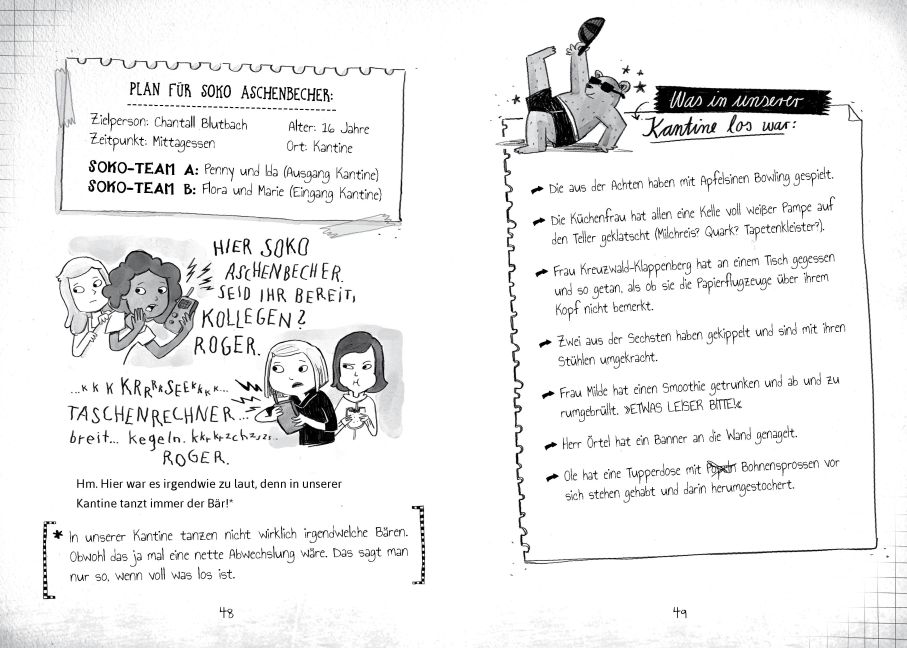 PLAN FÜR SOKO ASCHENBECHER:
Zielperson: Chantall Blutbach
Alter: 16 Jahre
Zeitpunkt: Mittagessen
Ort: Kantine
SOKO-TEAM A: Penny und Ida (Ausgang Kantine)
SOKO-TEAM B: Flora und Marie (Eingang Kantine)
HIER SOKO
ASCHENBECHER.
SEID IHR BEREIT,
KOLLEGEN?
ROGER.
...K K K KRRRKSEEKKKK...
TASCHENRECHNER...
breit... kegeln. kkrkrzchzszs..
ROGER.
Hm. Hier war es irgendwie zu laut, denn in unserer
Kantine tanzt immer der Bär!*
* In unserer Kantine tanzen nicht wirklich irgendwelche Bären.
Obwohl das ja mal eine nette Abwechslung wäre. Das sagt man
nur so, wenn voll was los ist.
48
Was in unserer
Kantine los war:
Die aus der Achten haben mit Apfelsinen Bowling gespielt.
Die Küchenfrau hat allen eine Kelle voll weißer Pampe auf
den Teller geklatscht (Milchreis? Quark? Tapetenkleister?).
Frau Kreuzwald-Klappenberg hat an einem Tisch gegessen
und so getan, als ob sie die Papierflugzeuge über ihrem
Kopf nicht bemerkt.
Zwei aus der Sechsten haben gekippelt und sind mit ihren
Stühlen umgekracht.
Frau Milde hat einen Smoothie getrunken und ab und zu
rumgebrüllt. »ETWAS LEISER BITTE!«
Herr Örtel hat ein Banner an die Wand genagelt.
Ole hat eine Tupperdose mit Bohnensprossen vor
sich stehen gehabt und darin herumgestochert.
49